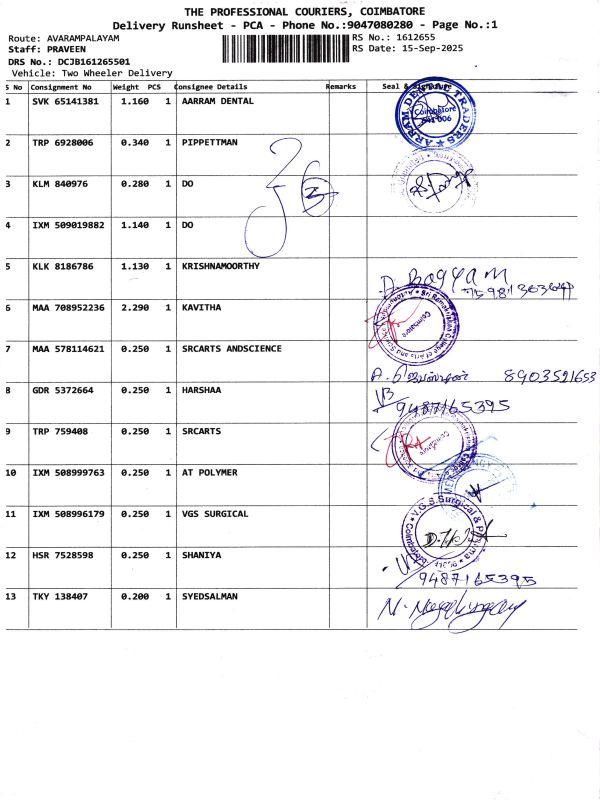 THE PROFESSIONAL COURIERS, COIMBATORE
Delivery Runsheet - PCA - Phone No.:9047080280 - Page No.:1
Route: AVARAMPALAYAM RS No.: 1612655
Staff: PRAVEEN RS Date: 15-Sep-2025
DRS No.: DCJB161265501
Vehicle: Two Wheeler Delivery
S No Consignment No Weight PCS Consignee Details Remarks Seal & Signature
1 SVK 65141381 1.160 1 AARRAM DENTAL
ARRAM DENTAL TRADERS Coimbatore 641 006
2 TRP 6928006 0.340 1 PIPPETTMAN
3 KLM 840976 0.280 1 DO
4 IXM 509019882 1.140 1 DO
5 KLK 8186786 1.130 1 KRISHNAMOORTHY
6 MAA 708952236 2.290 1 KAVITHA
Coimbatore
7 MAA 578114621 0.250 1 SRCARTS ANDSCIENCE
8903521653
8 GDR 5372664 0.250 1 HARSHAA
9487165395
9 TRP 759408 0.250 1 SRCARTS
Coimbatore
10 IXM 508999763 0.250 1 AT POLYMER
11 IXM 508996179 0.250 1 VGS SURGICAL
V.G.S. Surgical & Pharma
12 HSR 7528598 0.250 1 SHANIYA
9487165395
13 TKY 138407 0.200 1 SYEDSALMAN